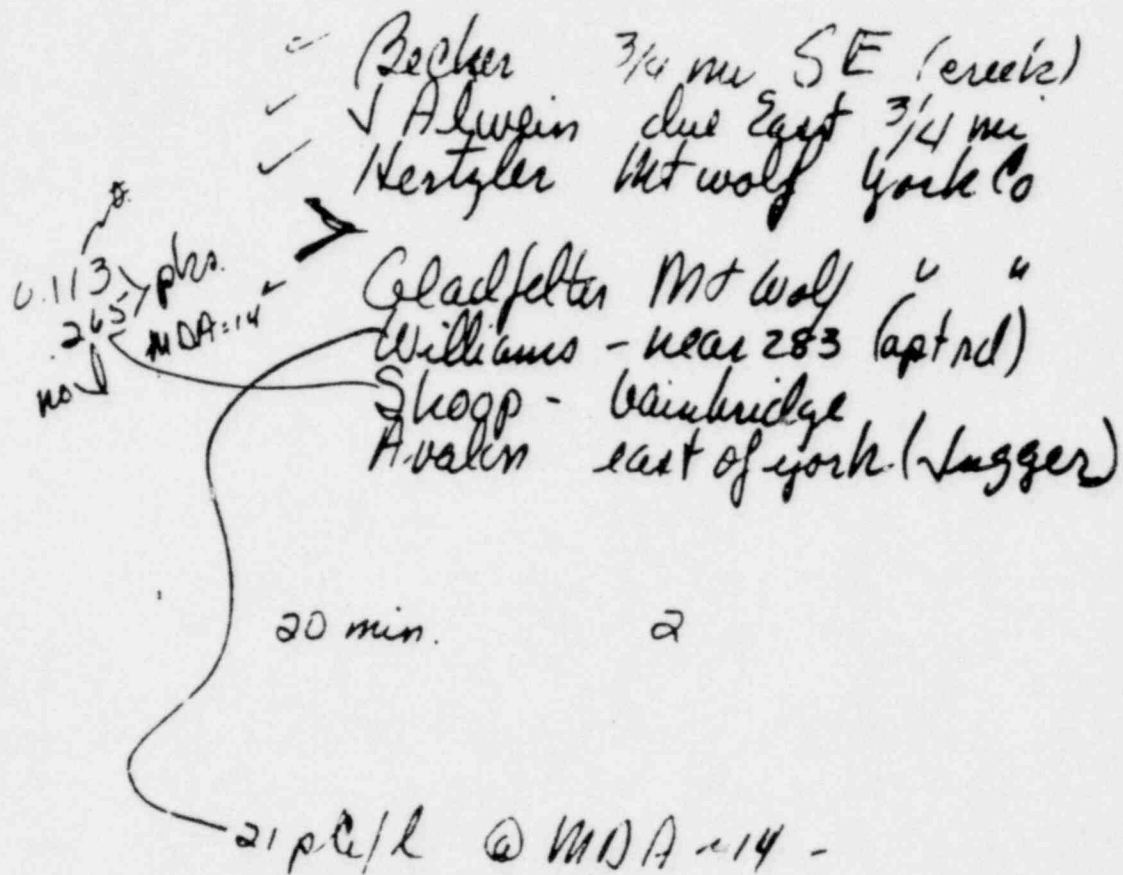 ✓ Becker 3/4 mi SE (creek)
✓ J Alwein due East 3/4 mi
✓ Hertzler Mt wolf York Co
>
Gladfelter Mt wolf " "
Williams - near 283 (apt rd)
Shoop - bainbridge
east of york (Jugger)
0.113
.265 pks.
MDA=14
no
20 min. 2
21 pCi/l @ MDA ~14 -